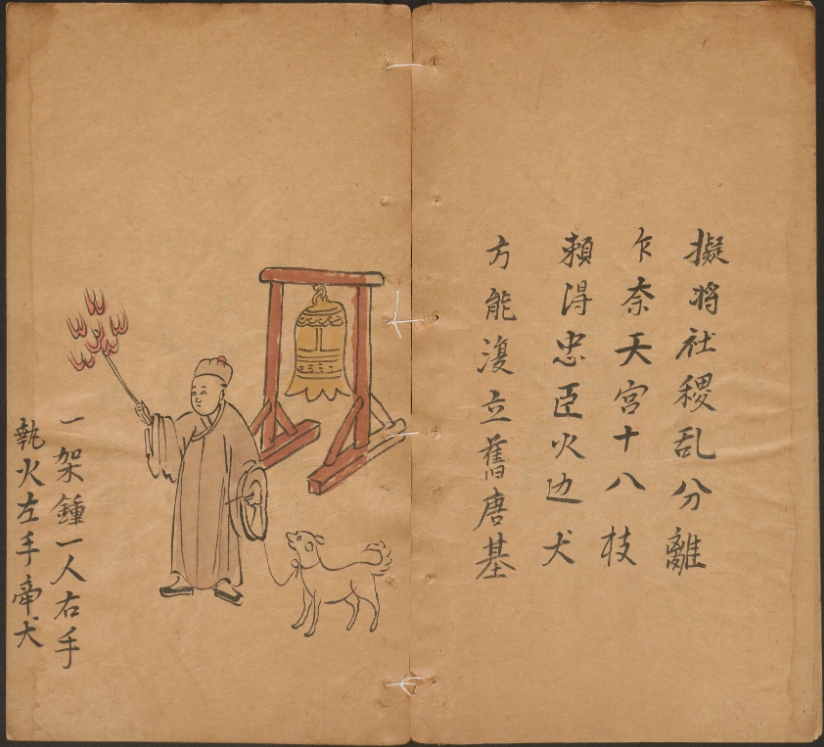 擬将社稷乱分離
乍奈天宫十八枝
賴淂忠臣火边犬
方能澓立舊唐基
一架鍾一人右手
執火左手帝犬